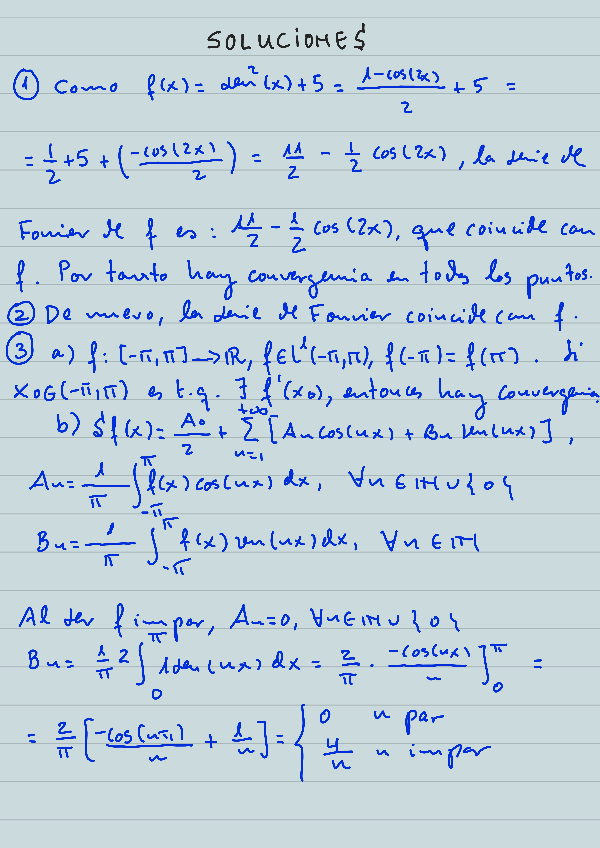 SOLUCIONES
① Como f(x) = sen²(x) + 5 = (1 - cos(2x))/2 + 5 =
= 1/2 + 5 + (-cos(2x)/2) = 11/2 - 1/2 cos(2x), la serie de
Fourier de f es: 11/2 - 1/2 cos(2x), que coincide con
f. Por tanto hay convergencia en todos los puntos.
② De nuevo, la serie de Fourier coincide con f.
③ a) f: [-π, π] → ℝ, f ∈ L¹(-π, π), f(-π) = f(π). Si
x₀ ∈ (-π, π) es t.q. ∃ f'(x₀), entonces hay convergencia
b) Sf(x) = A₀/2 + ∑_{n=1}^{+∞} [An cos(nx) + Bn sen(nx)],
An = 1/π ∫_{-π}^{π} f(x) cos(nx) dx, ∀n ∈ ℕ ∪ {0}
Bn = 1/π ∫_{-π}^{π} f(x) sen(nx) dx, ∀n ∈ ℕ
Al ser f impar, An = 0, ∀n ∈ ℕ ∪ {0}
Bn = 1/π 2 ∫_0^π 1 sen(nx) dx = 2/π · -cos(nx)/n ]_0^π =
= 2/π [-cos(nπ)/n + 1/n] = { 0 n par
4/n n impar